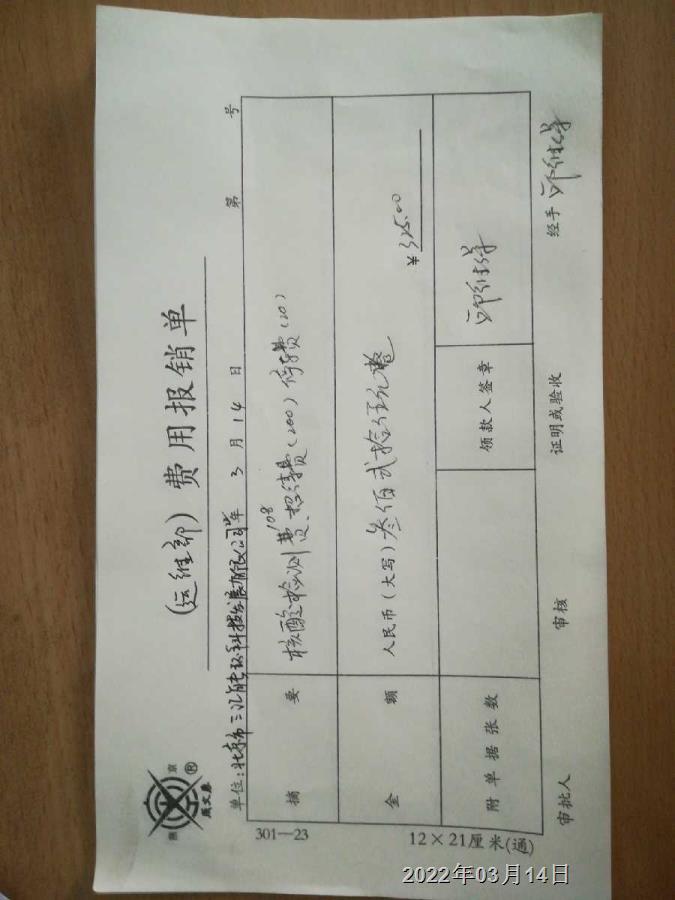 (运维部)费用报销单
燕 京
® 
成文厚
第 号
单位:北京市三汇能环科技发展有限公司 年 3 月 14 日
108
摘 要 核酸检测费、招待费(200)停车费(20)
金 额 人民币(大写)叁佰贰拾伍元整 ¥325.00
附单据张数 领款人签章
审批人 审核 证明或验收 经手
301—23
12×21厘米(通)
2022年03月14日